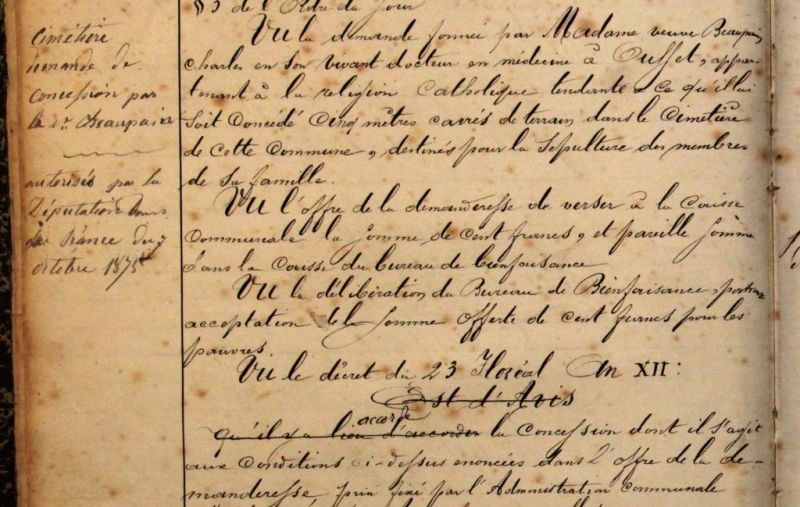 Cimetière
demande de
concession par
la Vve Beaupain
autorisés par la
Députation dans
sa séance du 7
octobre 1875
§ 3 de l'Ordre du Jour
Vu la demande formée par Madame veuve Beaupain
Charles en son vivant docteur en médecine à Ouffet, appar-
tenant à la religion Catholique tendante à ce qu'il lui
soit Concédé Cinq mètres carrés de terrain dans le Cimetière
de cette Commune, destinés pour la Sépulture des membres
de sa famille.
Vu l'offre de la demanderesse de verser à la Caisse
Communale la somme de cent francs, et pareille somme
dans la Caisse du bureau de bienfaisance
Vu la délibération du Bureau de Bienfaisance, portant
acceptation de la somme offerte de cent francs pour les
pauvres.
Vu le décret du 23 Floréal An XII :
Est d'Avis
accorde
qu'il y a lieu d'accorder la Concession dont il s'agit
aux Conditions ci-dessus enoncées dans l'offre de la de-
manderesse, prix fixé par l'Administration communale